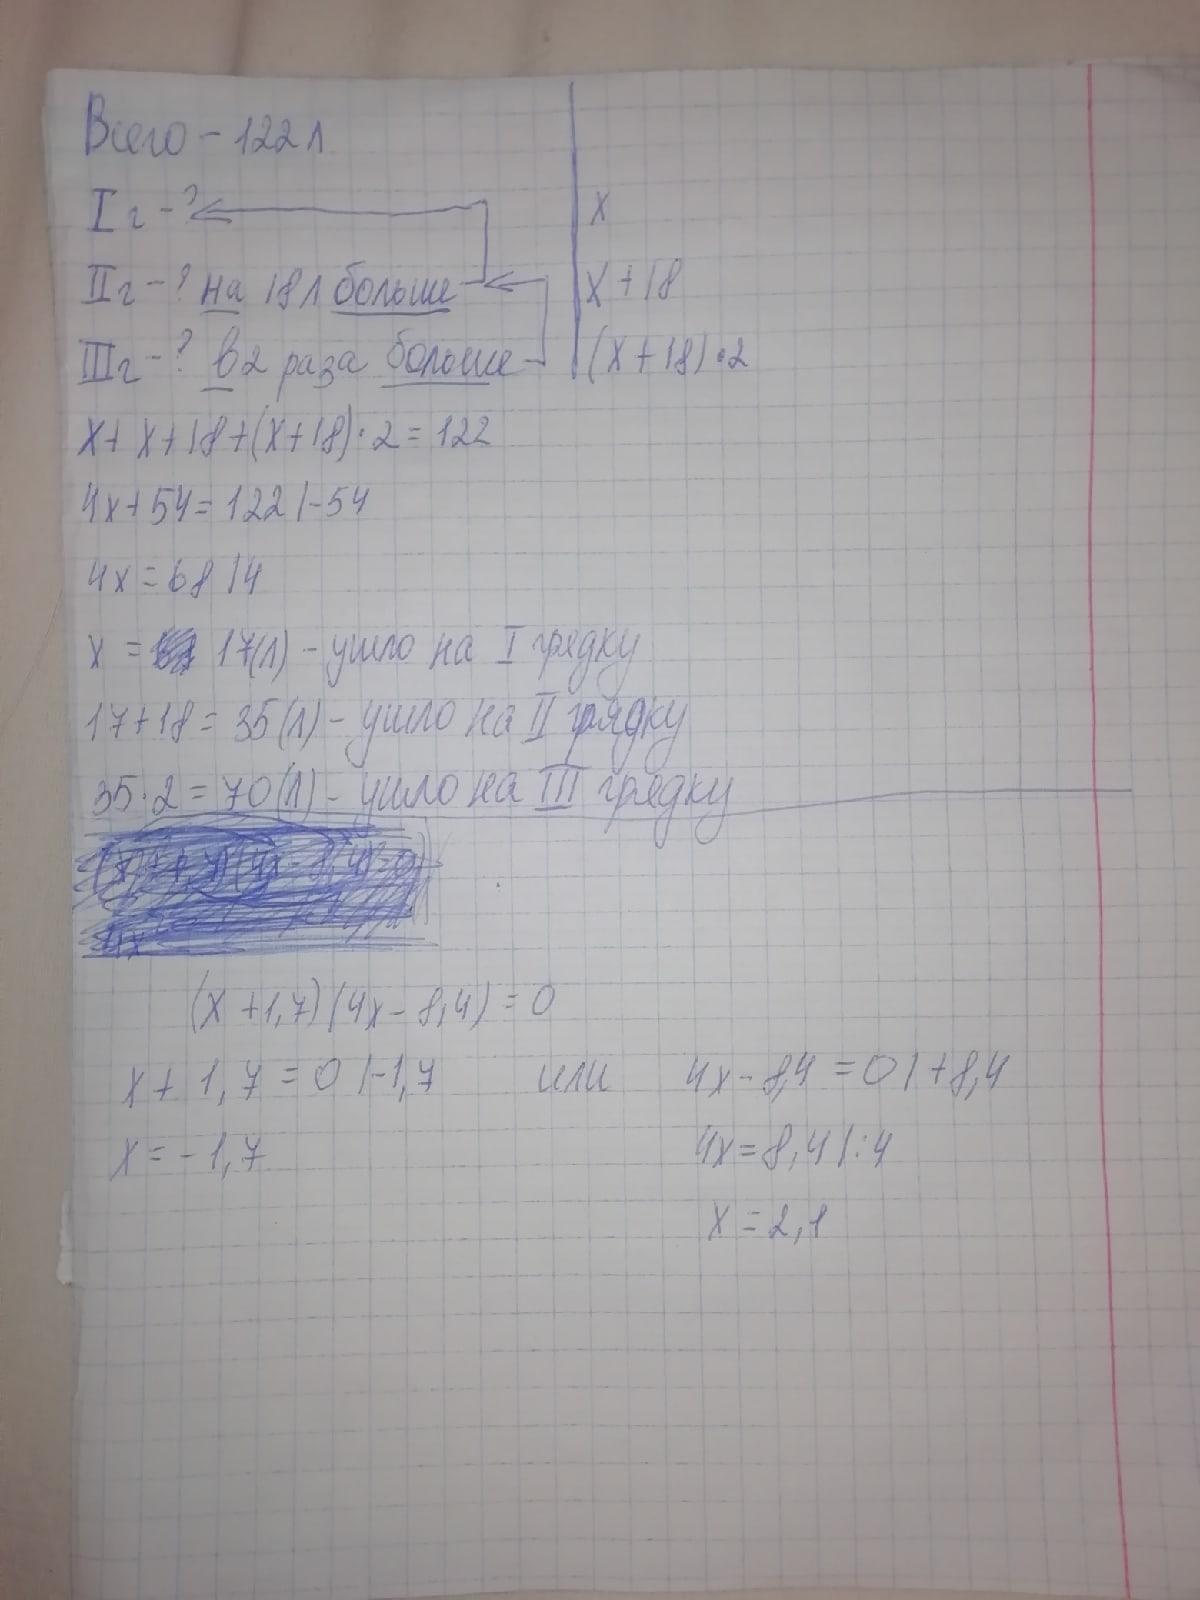 Всего - 122 л
I г - ? x
II г - ? на 18 л больше x + 18
III г - ? в 2 раза больше (x + 18) · 2
x + x + 18 + (x + 18) · 2 = 122
4x + 54 = 122 | -54
4x = 68 | 4
x = 17(л) - ушло на I грядку
17 + 18 = 35(л) - ушло на II грядку
35 · 2 = 70(л) - ушло на III грядку
(x + 1,7)(4x - 8,4) = 0
x + 1,7 = 0 | -1,7 или 4x - 8,4 = 0 | + 8,4
x = - 1,7 4x = 8,4 | : 4
x = 2,1